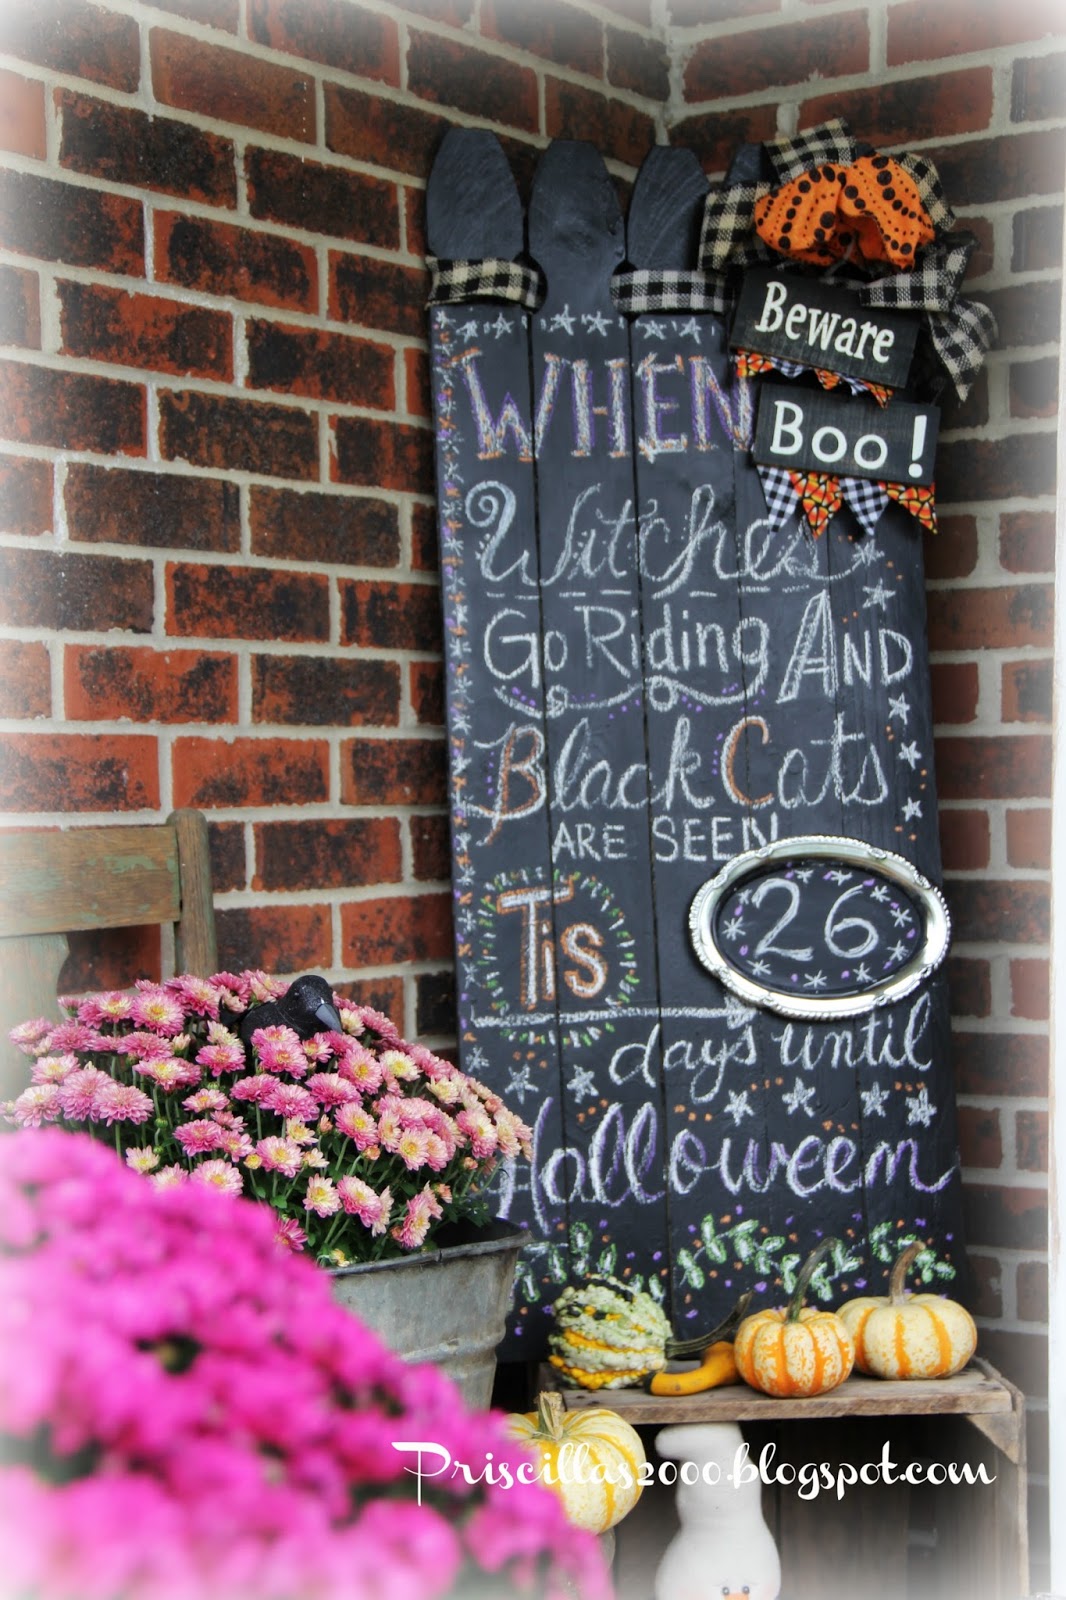 Beware
Boo!
WHEN
Witches
Go Riding AND
Black Cats
ARE SEEN
Tis 26
days until
Halloween
Priscillas2000.blogspot.com